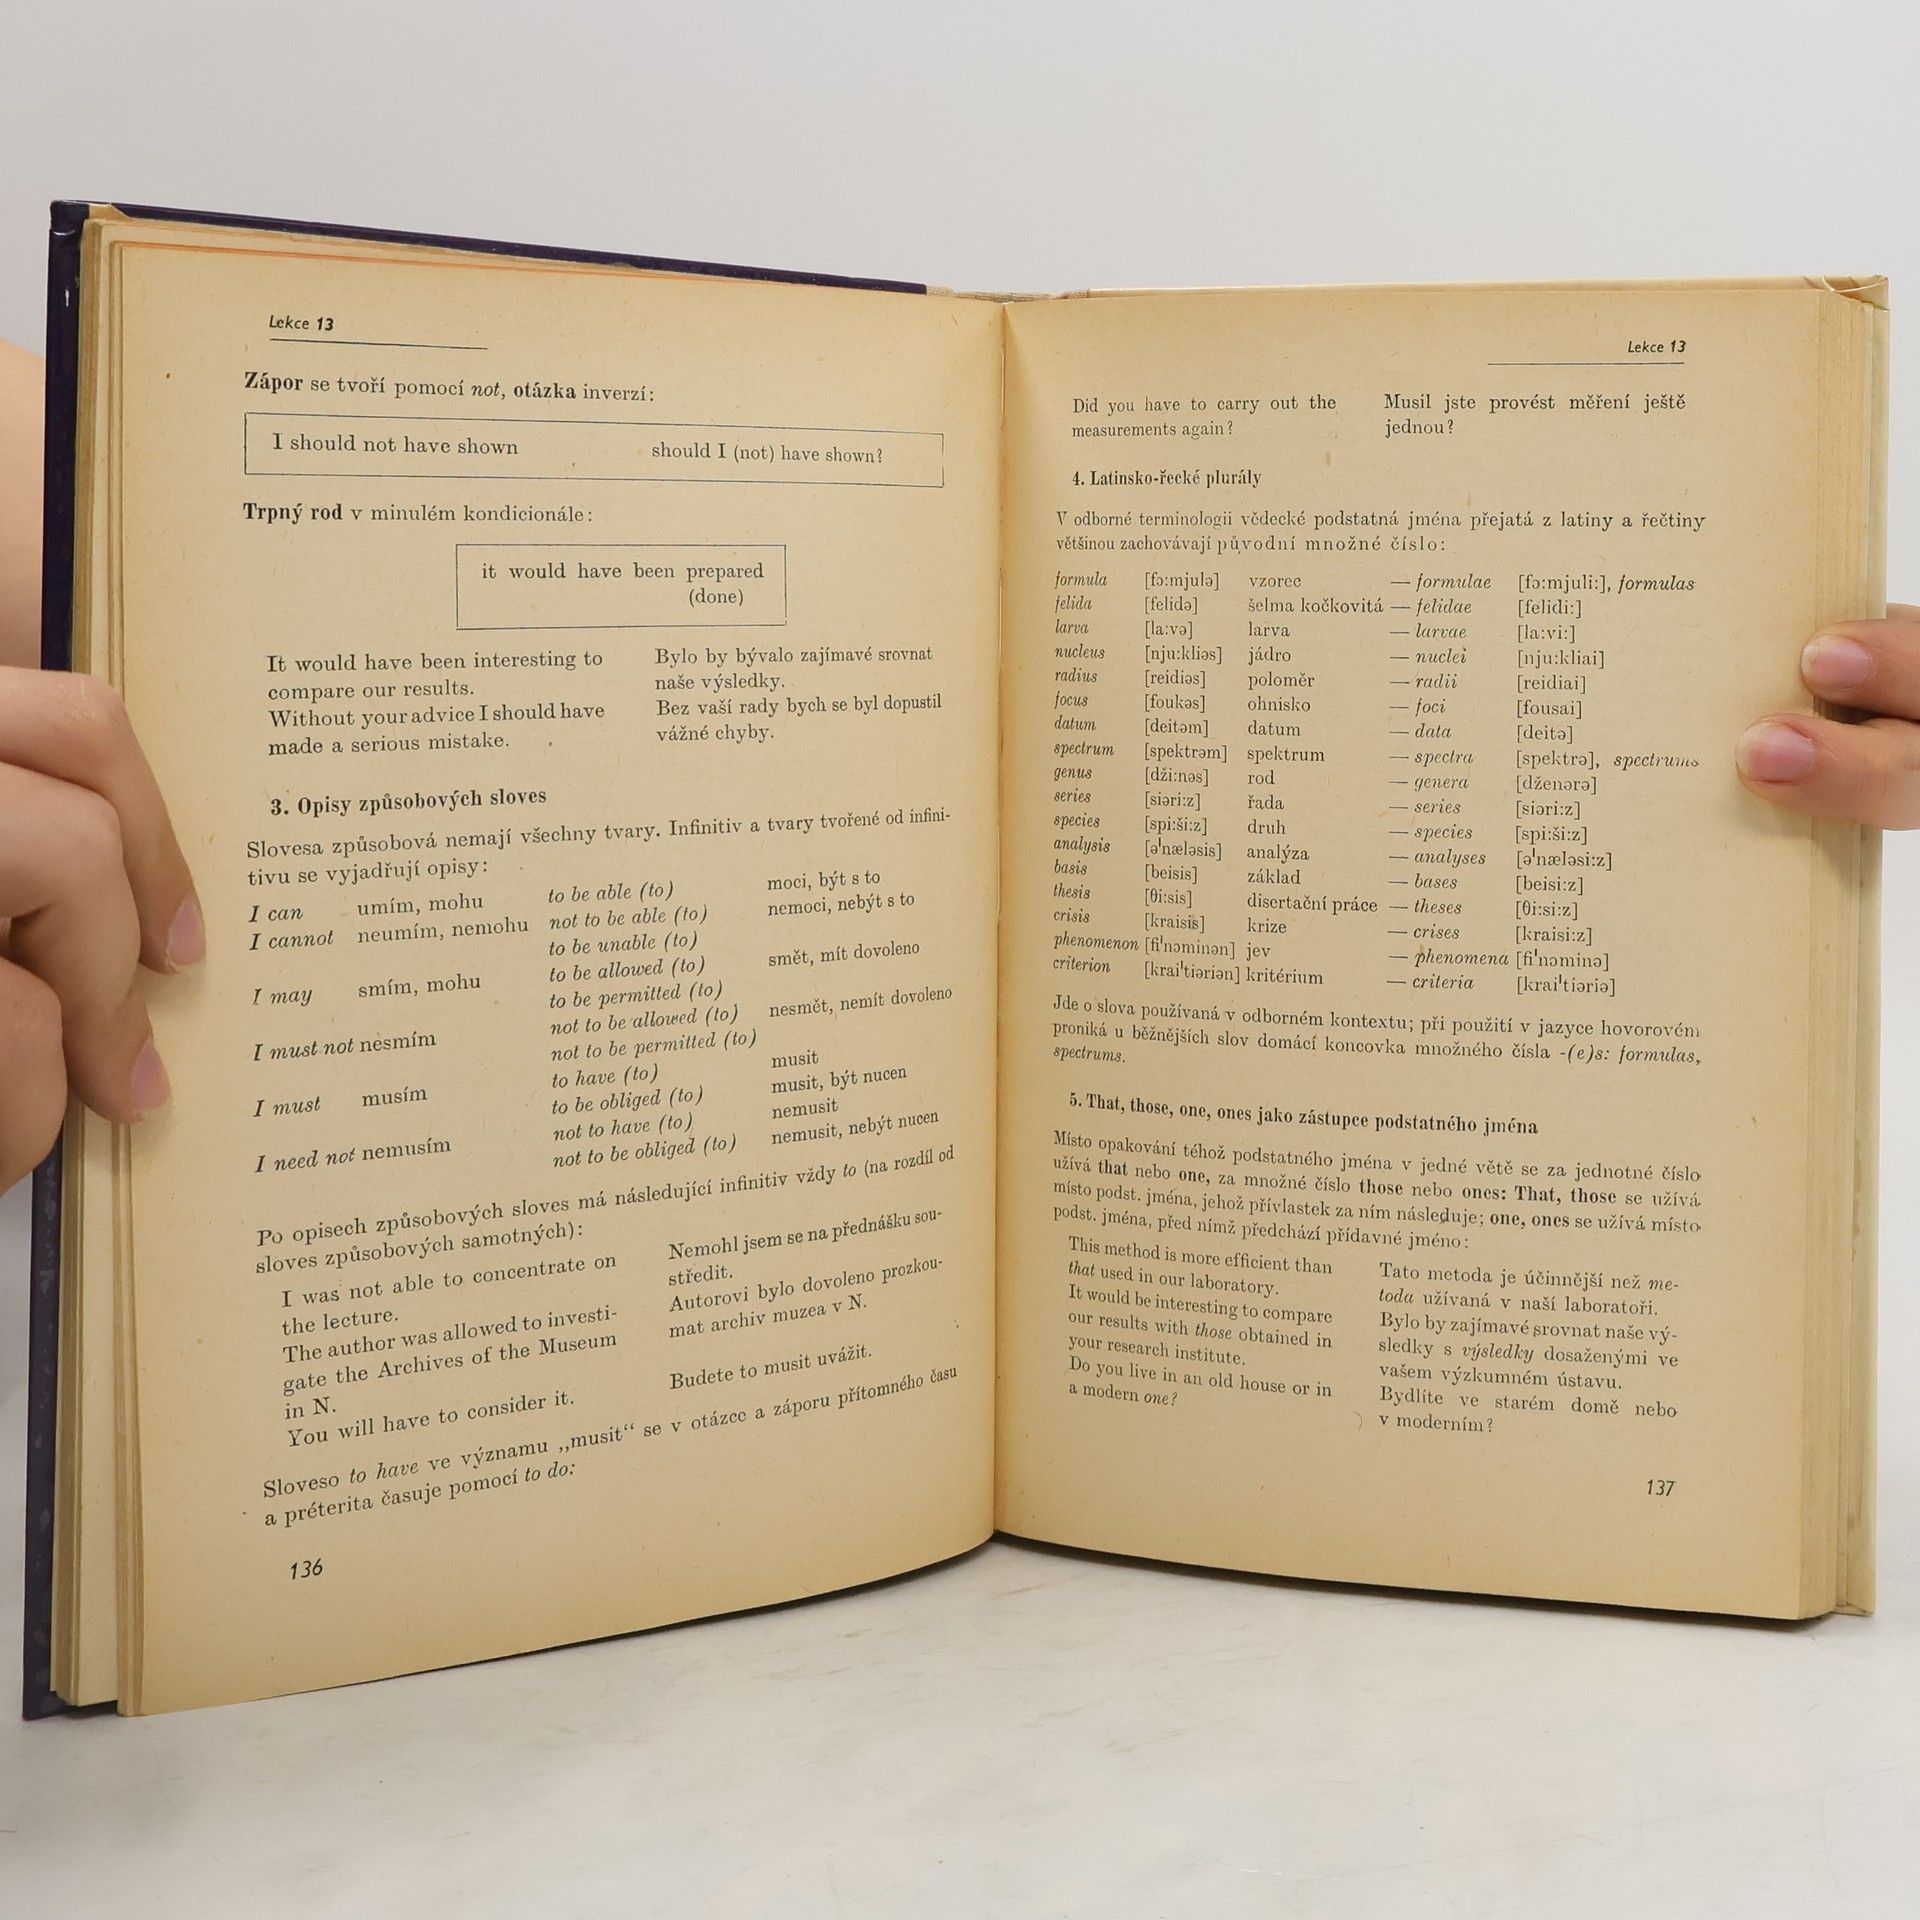 Lekce 13
Zápor se tvoří pomocí not, otázka inverzí:
I should not have shown should I (not) have shown?
Trpný rod v minulém kondicionále:
it would have been prepared
(done)
It would have been interesting to Bylo by bývalo zajímavé srovnat
compare our results. naše výsledky.
Without your advice I should have Bez vaší rady bych se byl dopustil
made a serious mistake. vážné chyby.
3. Opisy způsobových sloves
Slovesa způsobová nemají všechny tvary. Infinitiv a tvary tvořené od infini-
tivu se vyjadřují opisy:
I can umím, mohu to be able (to) moci, být s to
I cannot neumím, nemohu not to be able (to) nemoci, nebýt s to
to be unable (to)
I may smím, mohu to be allowed (to) smět, mít dovoleno
to be permitted (to)
I must not nesmím not to be allowed (to) nesmět, nemít dovoleno
not to be permitted (to)
I must musím to have (to) musit
to be obliged (to) musit, být nucen
I need not nemusím not to have (to) nemusit
not to be obliged (to) nemusit, nebýt nucen
Po opisech způsobových sloves má následující infinitiv vždy to (na rozdíl od
sloves způsobových samotných):
I was not able to concentrate on Nemohl jsem se na přednášku sou-
the lecture. středit.
The author was allowed to investi- Autorovi bylo dovoleno prozkou-
gate the Archives of the Museum mat archiv muzea v N.
in N.
You will have to consider it. Budete to musit uvážit.
Sloveso to have ve významu „musit“ se v otázce a záporu přítomného času
a préterita časuje pomocí to do:
136
Lekce 13
Did you have to carry out the Musil jste provést měření ještě
measurements again? jednou?
4. Latinsko-řecké plurály
V odborné terminologii vědecké podstatná jména přejatá z latiny a řečtiny
většinou zachovávají původní množné číslo:
formula [fɔ:mjulə] vzorec — formulae [fɔ:mjuli:], formulas
felida [felidə] šelma kočkovitá — felidae [felidi:]
larva [la:və] larva — larvae [la:vi:]
nucleus [nju:kliəs] jádro — nuclei [nju:kliai]
radius [reidiəs] poloměr — radii [reidiai]
focus [foukəs] ohnisko — foci [fousai]
datum [deitəm] datum — data [deitə]
spectrum [spektrəm] spektrum — spectra [spektrə], spectrums
genus [dži:nəs] rod — genera [dženərə]
series [siəri:z] řada — series [siəri:z]
species [spi:ši:z] druh — species [spi:ši:z]
analysis [ə'næləsis] analýza — analyses [ə'næləsi:z]
basis [beisis] základ — bases [beisi:z]
thesis [θi:sis] disertační práce — theses [θi:si:z]
crisis [kraisis] krize — crises [kraisi:z]
phenomenon [fi'nɔminən] jev — phenomena [fi'nɔminə]
criterion [krai'tiəriən] kritérium — criteria [krai'tiəriə]
Jde o slova používaná v odborném kontextu; při použití v jazyce hovorovém
proniká u běžnějších slov domácí koncovka množného čísla -(e)s: formulas,
spectrums.
5. That, those, one, ones jako zástupce podstatného jména
Místo opakování téhož podstatného jména v jedné větě se za jednotné číslo
užívá that nebo one, za množné číslo those nebo ones: That, those se užívá
místo podst. jména, jehož přívlastek za ním následuje; one, ones se užívá místo
podst. jména, před nímž předchází přídavné jméno:
This method is more efficient than Tato metoda je účinnější než me-
that used in our laboratory. toda užívaná v naší laboratoři.
It would be interesting to compare Bylo by zajímavé srovnat naše vý-
our results with those obtained in sledky s výsledky dosaženými ve
your research institute. vašem výzkumném ústavu.
Do you live in an old house or in Bydlíte ve starém domě nebo
a modern one? v moderním?
137